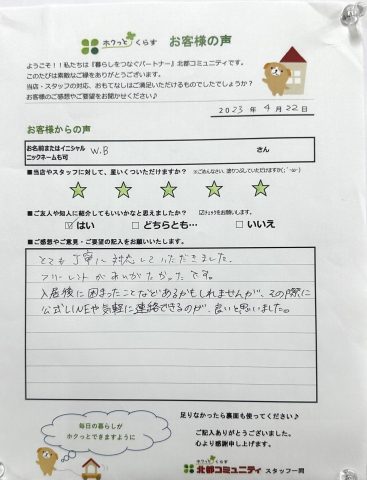 ホクっとくらす お客様の声
ようこそ！！私たちは『暮らしをつなぐパートナー』北都コミュニティです。
このたびは素敵なご縁をありがとうございます。
当店・スタッフの対応、おもてなしはご満足いただけるものでしたでしょうか？
お客様のご感想やご要望をお聞かせください♪
2023年4月22日
お客様からの声
お名前またはイニシャル
ニックネームも可
W.B さん
■当店やスタッフに対して、星いくついただけますか？ ※ごめんなさい、塗りつぶしていただけますか(；´･ω･)
■ご友人や知人に紹介してもいいかなと思えましたか？ ☑チェックをお願いします。
☑はい □どちらとも… □いいえ
■ご感想やご意見・ご要望の記入をお願いいたします。
とても丁寧に対応していただきました。
フリーレントがありがたかったです。
入居後に困まったことなどあるかもしれませんが、その際に
公式LINEや気軽に連絡できるのが、良いと思いました。
足りなかったら裏面も使ってください♪
毎日の暮らしが
ホクっとできますように
ご記入ありがとうございました。
心より感謝申し上げます。
ホクっとくらす
北都コミュニティ スタッフ一同